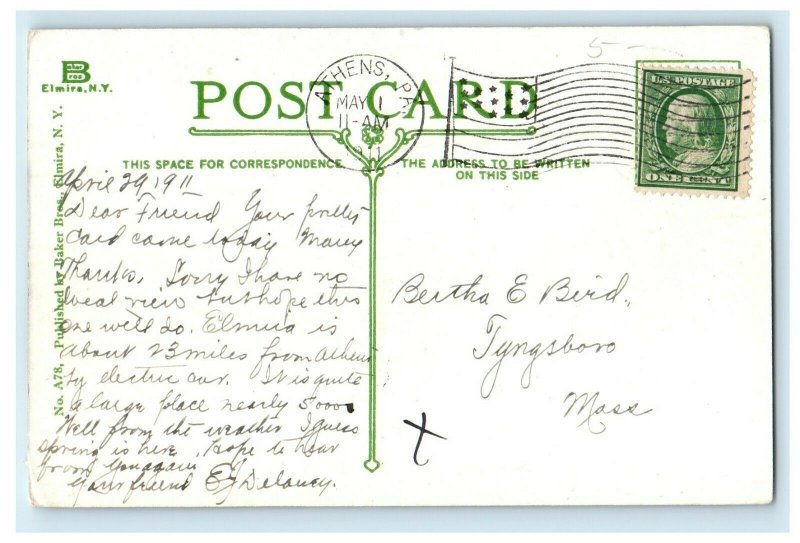 Baker
Bros
Elmira, N.Y.
POST CARD
ATHENS, PA.
MAY 1
11-AM
1911
U.S. POSTAGE
ONE CENT
THIS SPACE FOR CORRESPONDENCE
THE ADDRESS TO BE WRITTEN
ON THIS SIDE
No. A78, Published by Baker Bros., Elmira, N. Y.
April 29, 1911
Dear Friend Your pretty
card came today Many
Thanks. Sorry I have no
local view but hope this
one will do. Elmira is
about 23 miles from Athens
by electric car. It is quite
a large place nearly 5000
Well from the weather I guess
spring is here. Hope to hear
from you again
Your friend E J Delaney.
Bertha E Bird,
Tyngsboro
Mass
X
5